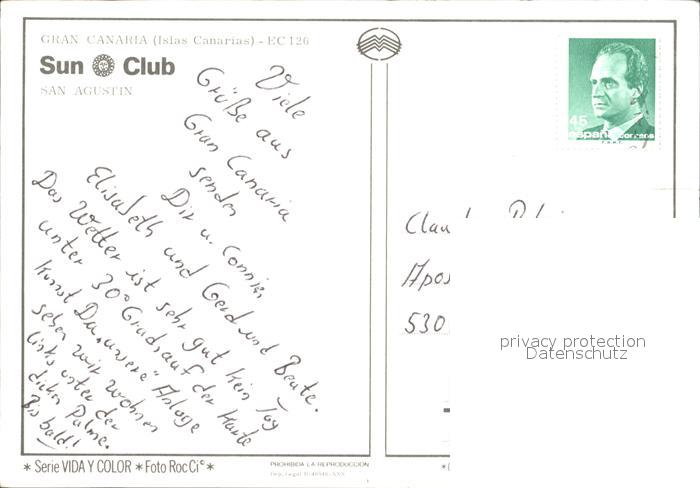 GRAN CANARIA (Islas Canarias) - EC 126
Sun Club
SAN AGUSTIN
Viele
Grüße aus
Gran Canaria
senden
Dir u. Connie,
Elisabeth und Gerd und Beate.
Das Wetter ist sehr gut kein Tag
unter 30° Grad, auf der Karte
kannst Du "unsere" Anlage
sehen wir wohnen
links unter der
dicken Palme.
Bis bald!
45
españa correos
F.N.M.T.
Claudia
530
privacy protection
Datenschutz
* Serie VIDA Y COLOR * Foto Roc Ci© *
PROHIBIDA LA REPRODUCCION